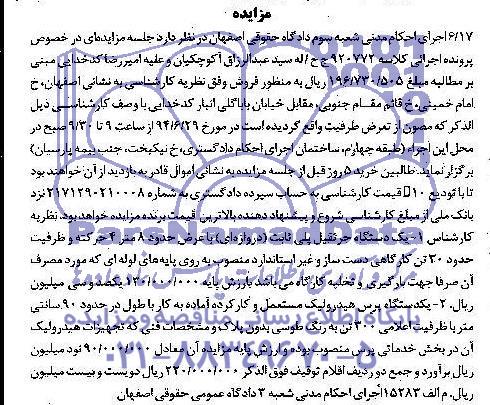 مزایده
۶/۱۷ اجرای احکام مدنی شعبه سوم دادگاه حقوقی اصفهان در نظر دارد جلسه مزایده‌ای در خصوص
پرونده اجرائی کلاسه ۹۲۰۷۷۲ ج ح / له سید عبدالرزاق آکوچکیان و علیه امیررضا کدخدایی مبنی
بر مطالبه مبلغ ۱۹۶/۷۳۰/۵۰۵ ریال به منظور فروش وفق نظریه کارشناسی به نشانی اصفهان، خ
امام خمینی، خ قائم مقام جنوبی، مقابل خیابان باباگلی انبار کدخدایی با وصف کارشناسی ذیل
الذکر که مصون از تعرض ظرفیت واقع گردیده است در مورخ ۹۴/۶/۲۹ از ساعت ۹ تا ۹/۳۰ صبح در
محل این اجراء (طبقه چهارم، ساختمان اجرای احکام دادگستری، خ نیکبخت، جنب بیمه پارسیان)
برگزار نماید. طالبین خرید ۵ روز قبل از جلسه مزایده به نشانی اموال قادر به بازدید از آن خواهند بود
تا با تودیع ۱۰٪ قیمت کارشناسی به حساب سپرده دادگستری به شماره ۲۱۷۱۲۹۰۲۱۰۰۰۸ نزد
بانک ملی از مبلغ کارشناسی شروع و پیشنهاد دهنده بالاترین قیمت برنده مزایده خواهد بود. نظریه
کارشناس ۱- یک دستگاه جرثقیل پلی ثابت (دروازه‌ای) با عرض حدود ۸ متر ۴ حرکته و ظرفیت
حدود ۳۰ تن کارگاهی دست ساز و غیر استاندارد منصوب به روی پایه‌های لوله ای که مورد مصرف
آن صرفا جهت بارگیری و تخلیه کارگاه می باشد بارزش پایه ۱۳۰/۰۰۰/۰۰۰ یکصد و سی میلیون
ریال. ۲- یکدستگاه پرس هیدرولیک مستعمل و کار کرده آماده به کار با طول در حدود ۹۰ سانتی
متر با ظرفیت اعلامی ۳۰۰ تن به رنگ طوسی بدون پلاک و مشخصات فنی که تجهیزات هیدرولیک
آن در بخش خدماتی پرس منصوب بوده و ارزش پایه مزایده آن معادل ۹۰/۰۰۰/۰۰۰ نود میلیون
ریال برآورد و جمع دو ردیف اقلام توقیف فوق الذکر ۲۲۰/۰۰۰/۰۰۰ ریال دویست و بیست میلیون
ریال. م الف ۱۵۲۸۳ اجرای احکام مدنی شعبه ۳ دادگاه عمومی حقوقی اصفهان
ParsNamadData
پایگاه اطلاع رسانی مناقصه و مزایده
۰۲۱-۸۸۳۴۹۶۷۰-۵